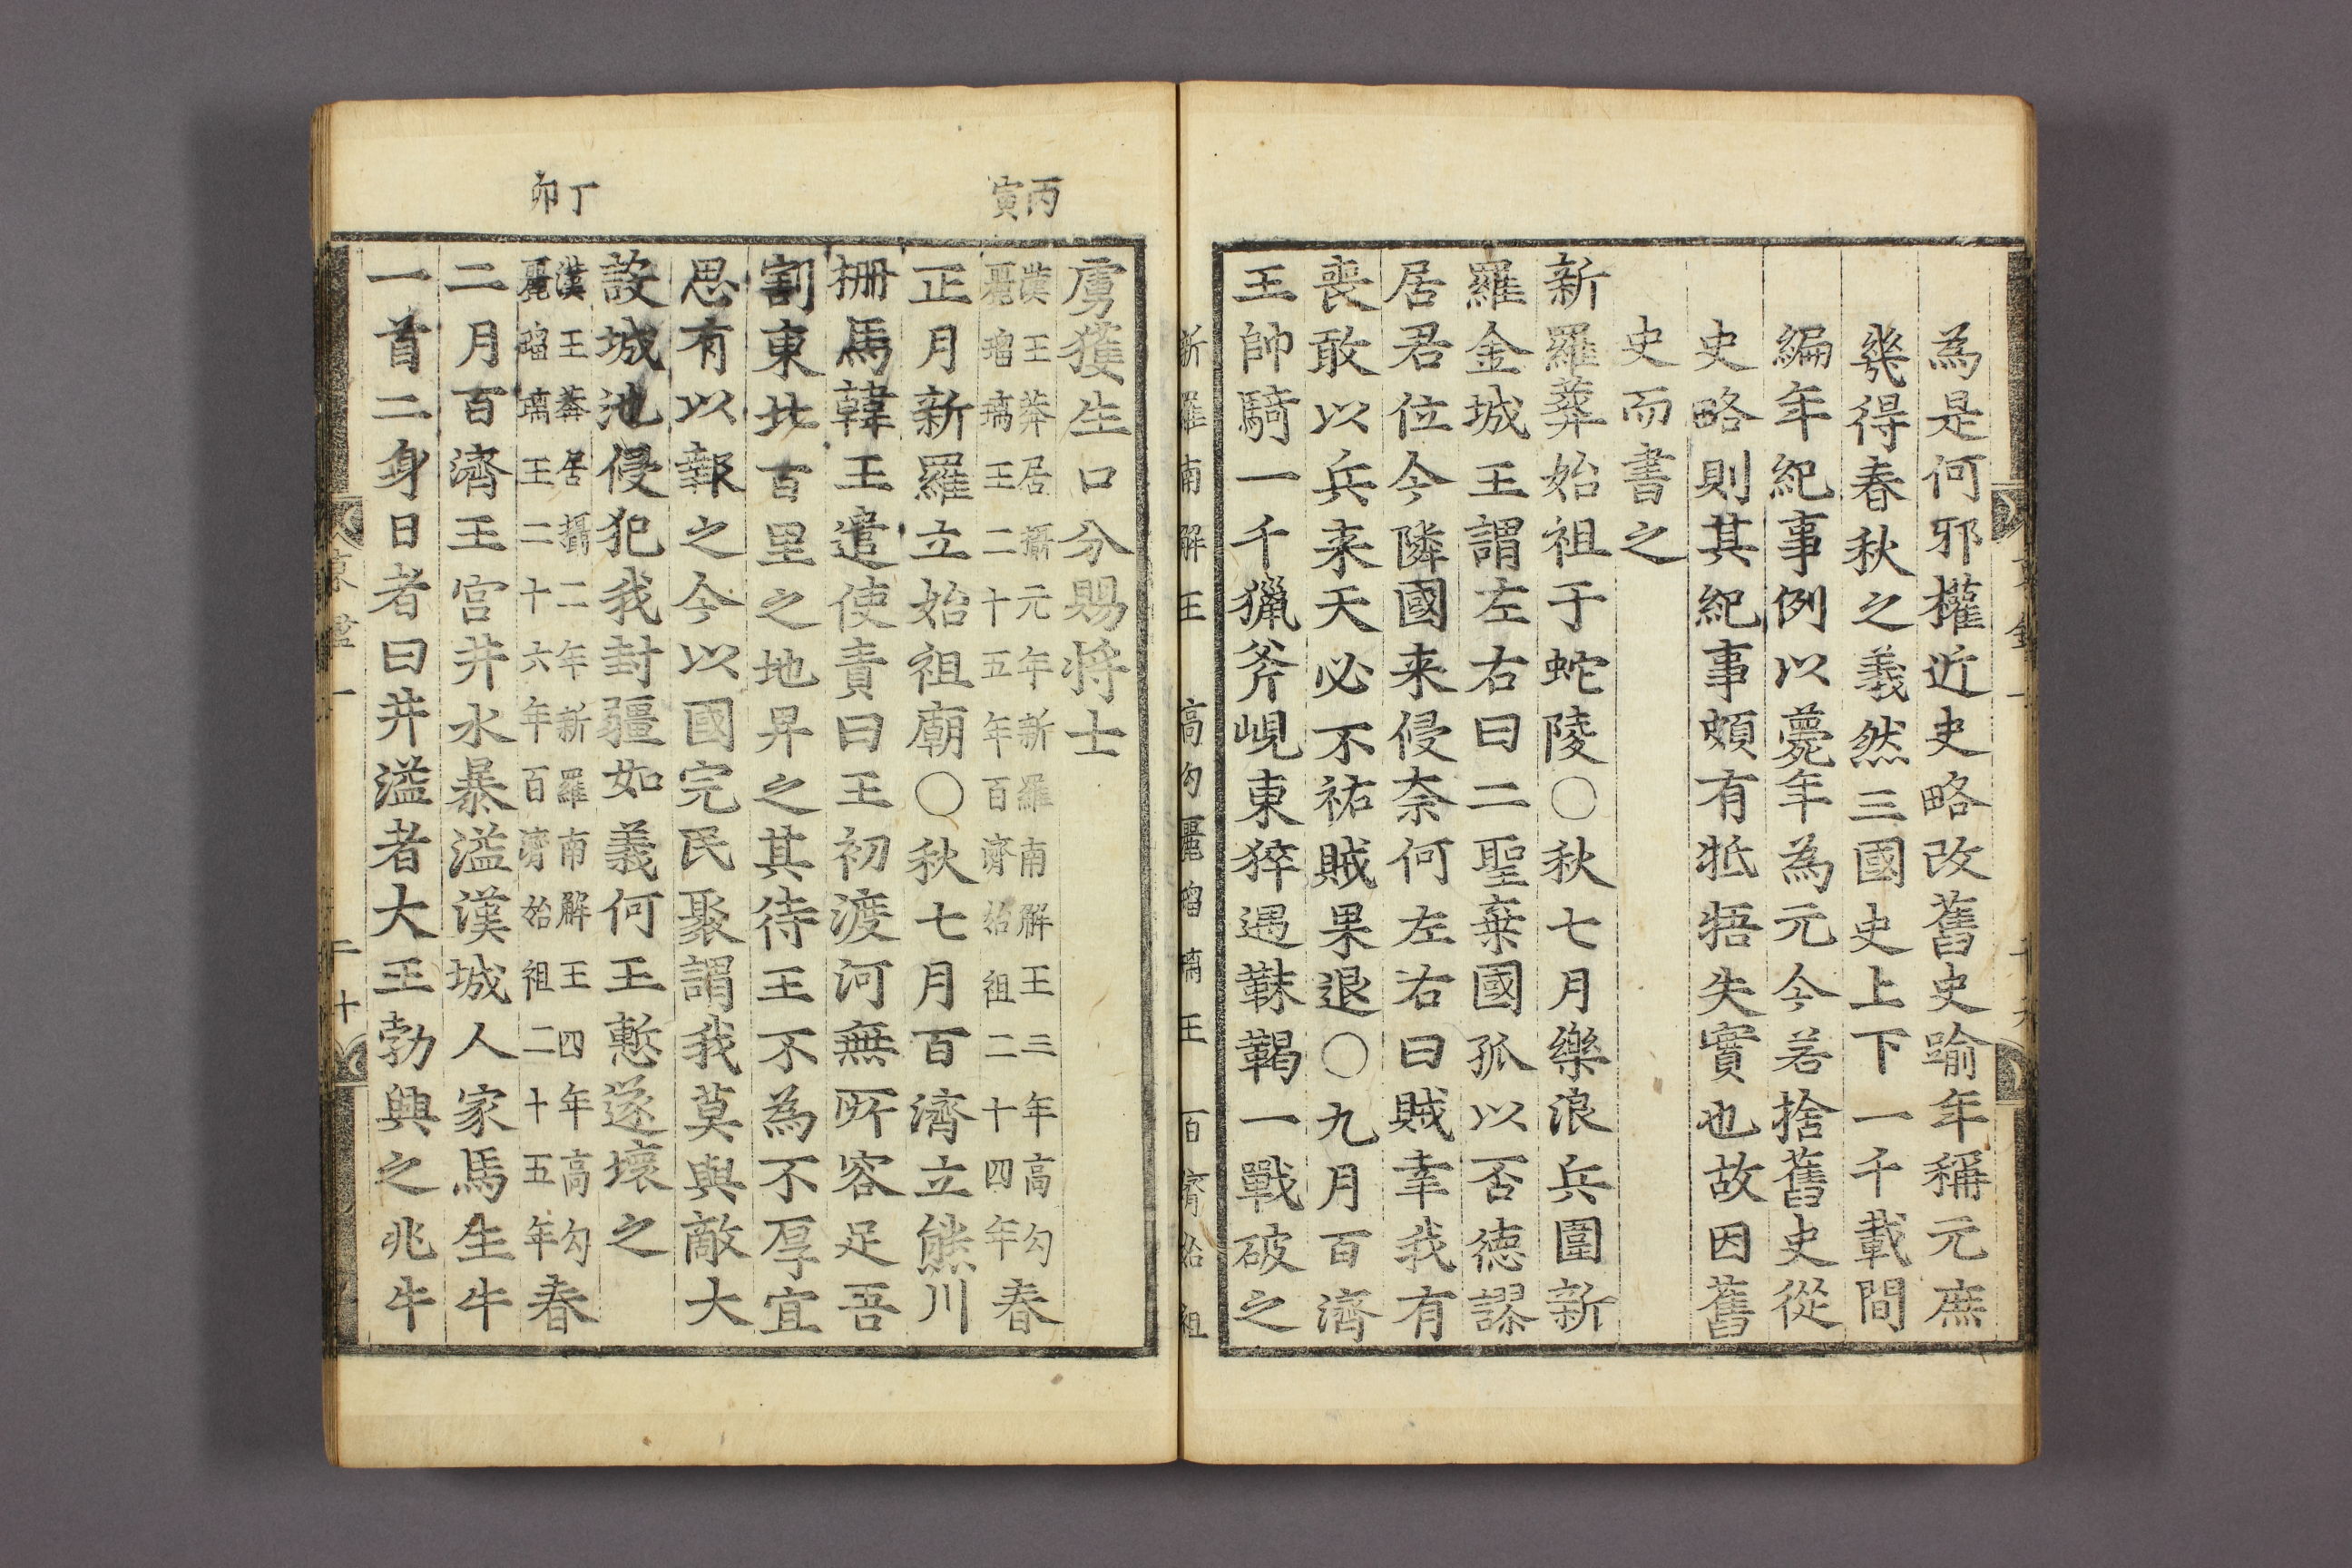 為是何邪權近史略改舊史踰年稱元庶
幾得春秋之義然三國史上下一千載間
編年紀事例以薨年為元今若捨舊史從
史略則其紀事頗有牴牾失實也故因舊
史而書之
新羅葬始祖于蛇陵〇秋七月樂浪兵圍新
羅金城王謂左右曰二聖棄國孤以否德謬
居君位今隣國来侵奈何左右曰賊幸我有
喪敢以兵来天必不祐賊果退〇九月百濟
王帥騎一千獵斧峴東猝遇靺鞨一戰破之
新羅南解王 高句麗瑠璃王 百濟始祖
虜獲生口分賜将士
丙寅
漢王莽居攝元年新羅南解王三年高勾
麗瑠璃王二十五年百濟始祖二十四年
春
正月新羅立始祖廟〇秋七月百濟立熊川
柵馬韓王遣使責曰王初渡河無所容足吾
割東北百里之地昇之其待王不為不厚宜
思有以報之今以國完民聚謂我莫與敵大
設城池侵犯我封疆如義何王慙遂壞之
丁卯
漢王莽居攝二年新羅南解王四年高勾
麗瑠璃王二十六年百濟始祖二十五年
春
二月百濟王宮井水暴溢漢城人家馬生牛
一首二身日者曰井溢者大王勃興之兆牛
東鑑一 二十